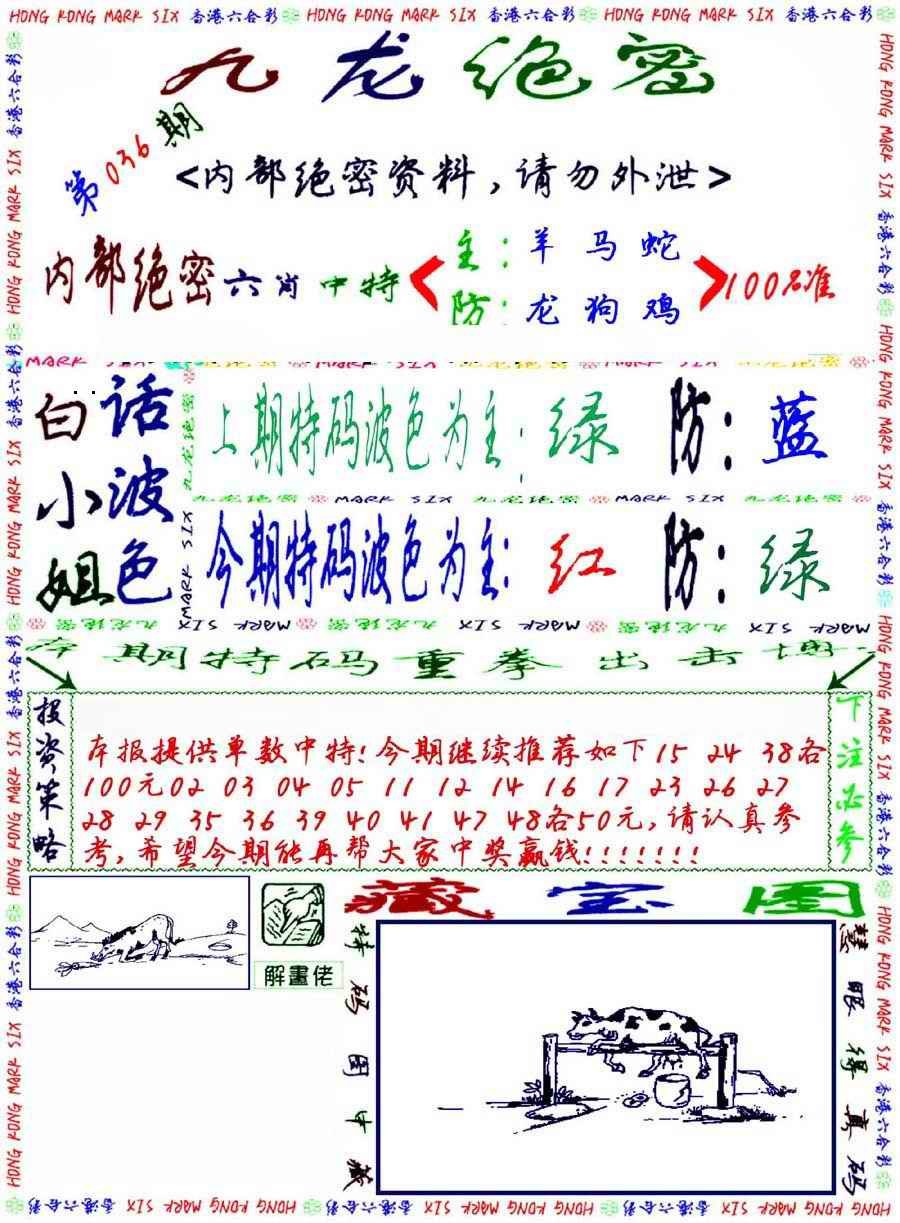 HONG KONG MARK SIX 香港六合彩 HONG KONG MARK SIX 香港六合彩 HONG KONG MARK SIX 香港六合彩
九龙绝密
第036期
<内部绝密资料,请勿外泄>
内部绝密六肖中特
主:羊 马 蛇
防:龙 狗 鸡
100%准
白话
小波
姐色
上期特码波色为主:绿 防:蓝
九龙绝密 MARK SIX 九龙绝密 MARK SIX 九龙绝密
今期特码波色为主:红 防:绿
九龙绝密 MARK SIX 九龙绝密 MARK SIX 九龙绝密 MARK SIX 九龙绝密 MARK
期特码重拳出击
投资策略
本报提供单数中特!今期继续推荐如下15 24 38各
100元02 03 04 05 11 12 14 16 17 23 26 27
28 29 35 36 39 40 41 47 48各50元,请认真参
考,希望今期能再帮大家中奖赢钱!!!!!!!
下注必参
解畫佬
藏宝图
特码图中藏
慧眼得真码
HONG KONG MARK SIX 香港六合彩 HONG KONG MARK SIX 香港六合彩 HONG KONG MARK SIX 香港六合彩